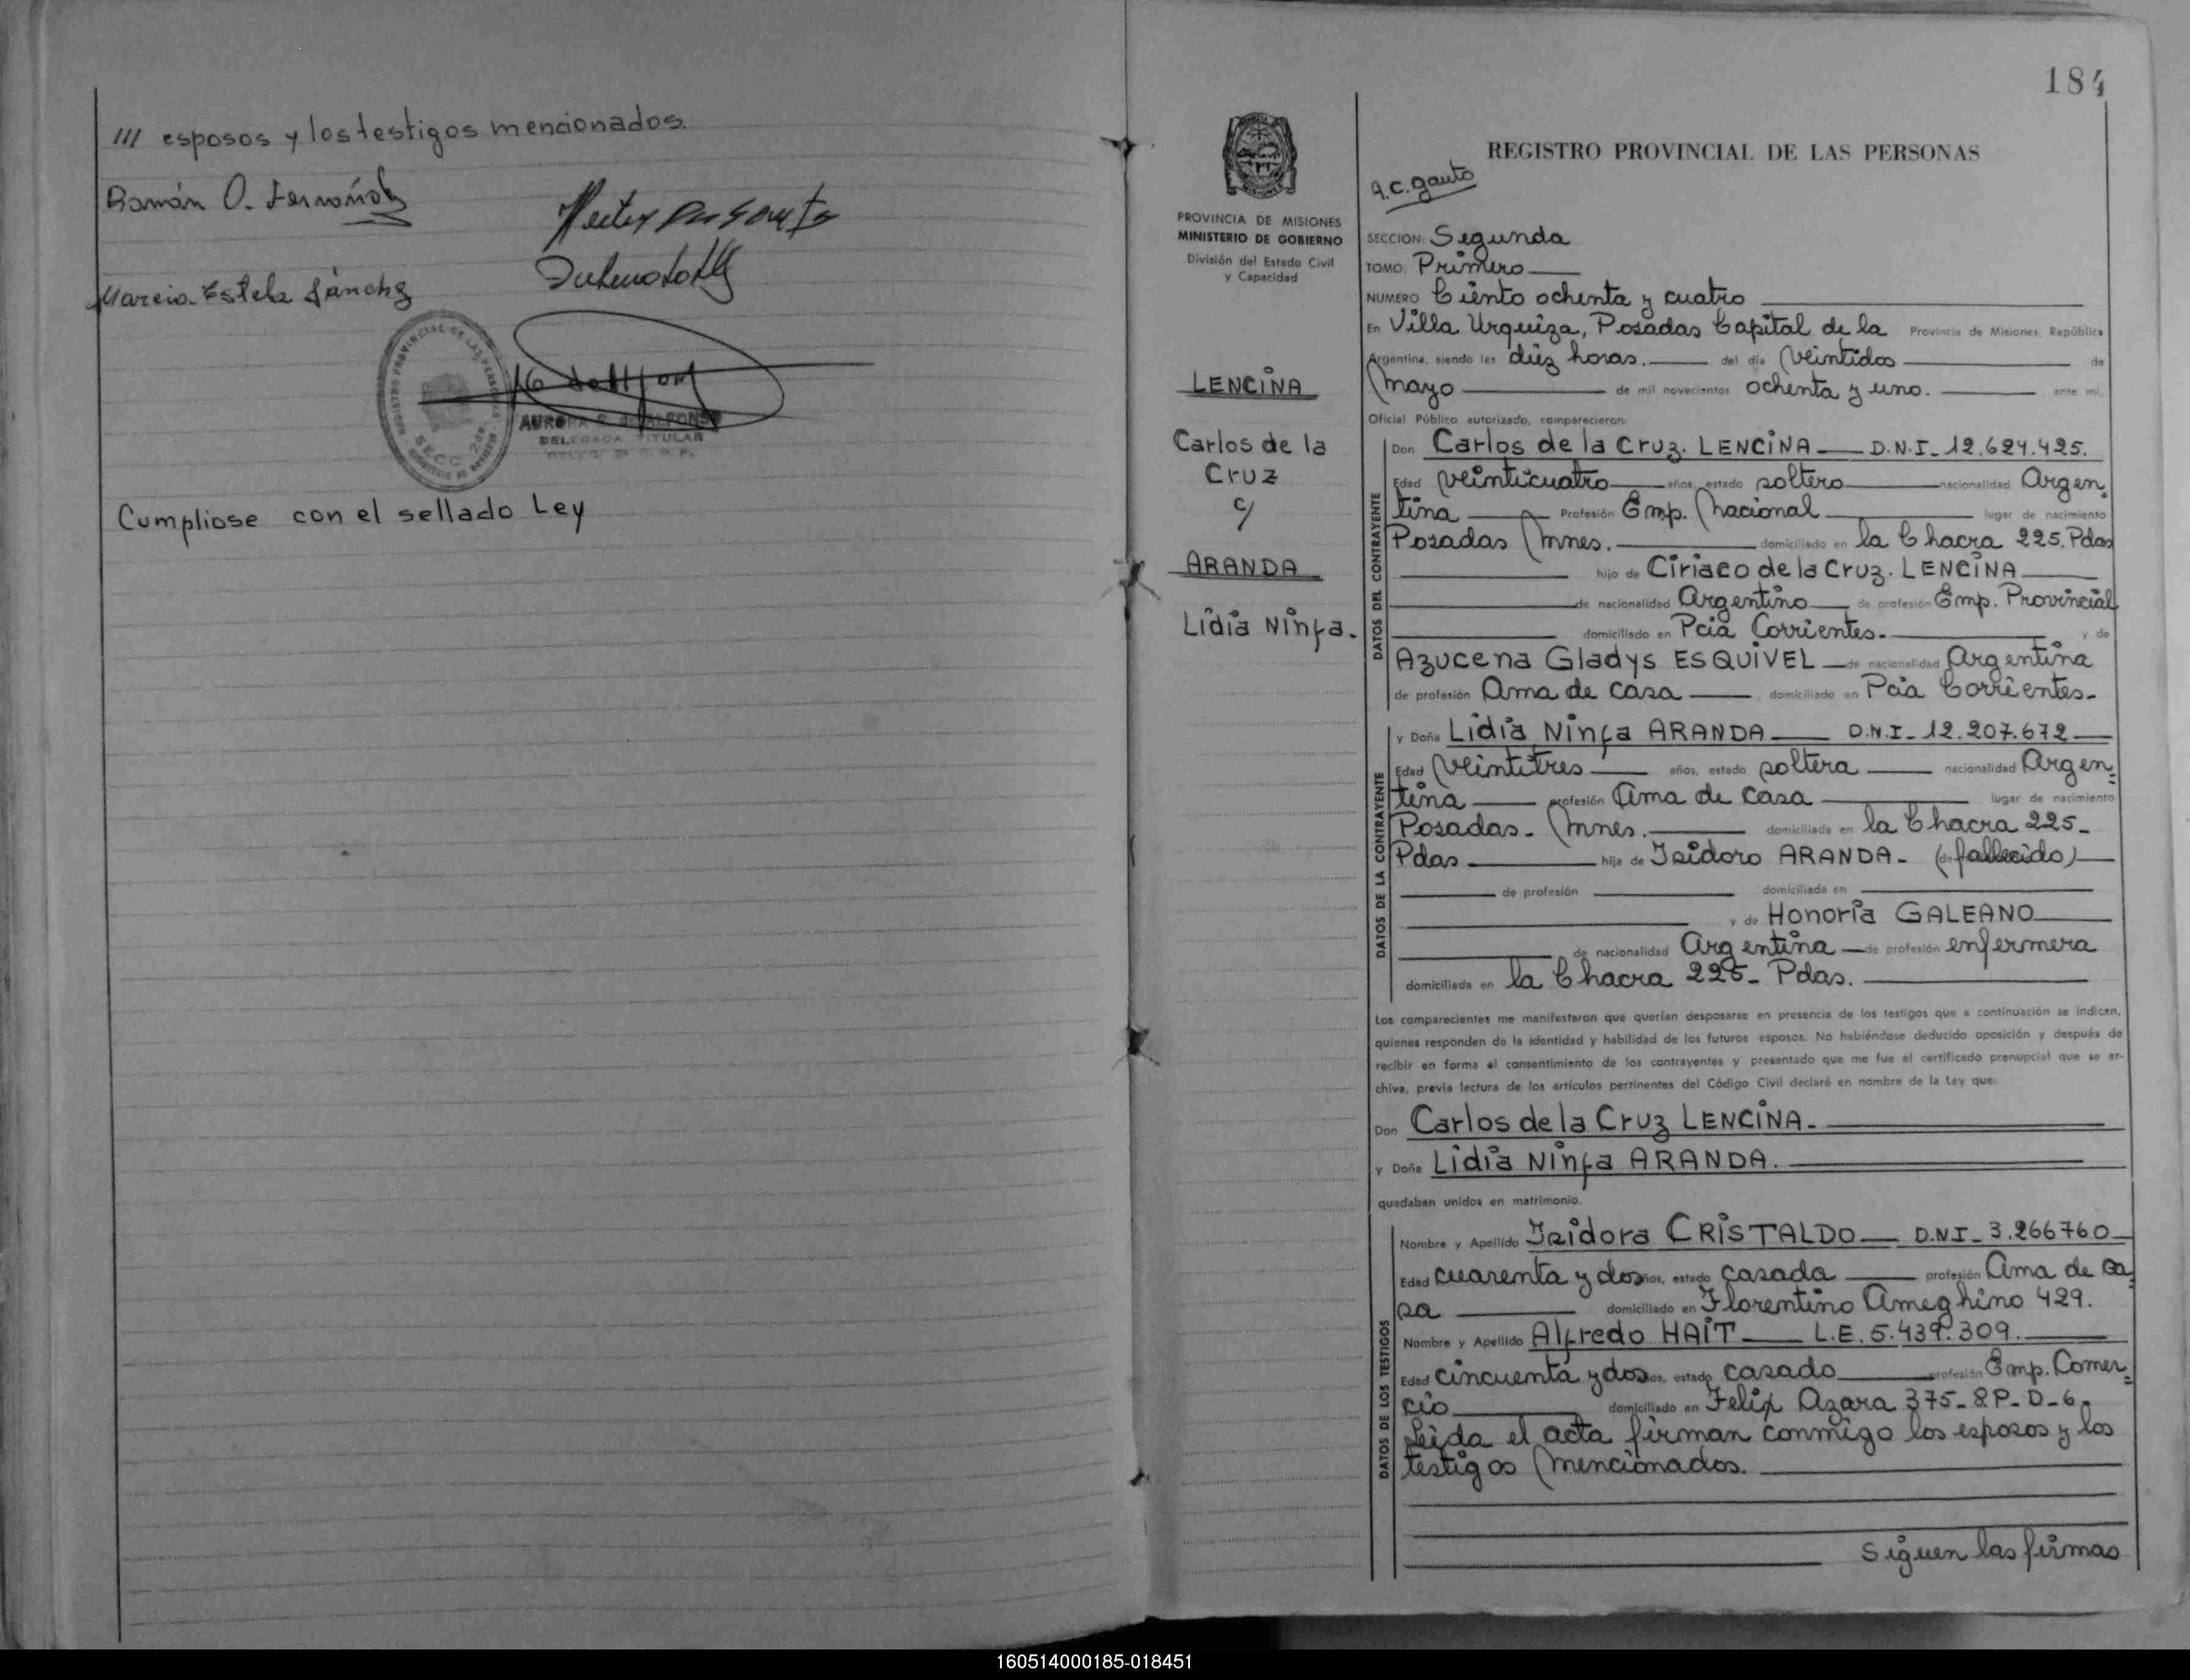 /// esposos y los testigos mencionados.
Ramón O. Fernández
Marcia Estela Sánchez
AURORA R. de ALFONSO
DELEGADA TITULAR
Cumpliose con el sellado Ley
184
REGISTRO PROVINCIAL DE LAS PERSONAS
A.C. Gauto
PROVINCIA DE MISIONES
MINISTERIO DE GOBIERNO
División del Estado Civil
y Capacidad
LENCINA
Carlos de la
Cruz
c/
ARANDA
Lidia Ninfa.
SECCION: Segunda
TOMO: Primero
NUMERO Ciento ochenta y cuatro
En Villa Urquiza, Posadas Capital de la Provincia de Misiones, República
Argentina, siendo las diez horas. del día veintidos de
mayo de mil novecientos ochenta y uno. ante mí,
Oficial Público autorizado, comparecieron:
DATOS DEL CONTRAYENTE
Don Carlos de la Cruz. LENCINA D.N.I. 12.624.425.
Edad veinticuatro años, estado soltero nacionalidad Argen=
tina Profesión Emp. Nacional lugar de nacimiento
Posadas Mnes. domiciliado en la Chacra 225. Pdas
hijo de Ciriaco de la Cruz. LENCINA
de nacionalidad Argentino de profesión Emp. Provincial
domiciliado en Pcia Corrientes. y de
Azucena Gladys ESQUIVEL de nacionalidad Argentina
de profesión Ama de casa domiciliado en Pcia Corrientes-
DATOS DE LA CONTRAYENTE
y Doña Lidia Ninfa ARANDA D.N.I- 12.207.672
Edad veintitres años, estado soltera nacionalidad Argen=
tina profesión Ama de casa lugar de nacimiento
Posadas- Mnes. domiciliada en la Chacra 225-
Pdas hija de Isidoro ARANDA- (fallecido)
de profesión domiciliada en
y de Honoria GALEANO
de nacionalidad Argentina de profesión enfermera
domiciliada en la Chacra 225- Pdas.
Los comparecientes me manifestaron que querían desposarse en presencia de los testigos que a continuación se indican,
quienes responden de la identidad y habilidad de los futuros esposos. No habiéndose deducido oposición y después de
recibir en forma el consentimiento de los contrayentes y presentado que me fue el certificado prenupcial que se ar-
chiva, previa lectura de los artículos pertinentes del Código Civil declaré en nombre de la Ley que:
Don Carlos de la Cruz LENCINA.
y Doña Lidia Ninfa ARANDA.
quedaban unidos en matrimonio.
DATOS DE LOS TESTIGOS
Nombre y Apellido Isidora CRISTALDO D.N.I- 3.266760
Edad cuarenta y dos años, estado casada profesión Ama de ca=
sa domiciliado en Florentino Ameghino 429.
Nombre y Apellido Alfredo HAIT L.E. 5.439.309.
Edad cincuenta y dos años, estado casado profesión Emp. Comer=
cio domiciliado en Felix Azara 375-8P-D-6.
Leida el acta firman conmigo los esposos y los
testigos mencionados.
Siguen las firmas
160514000185-018451